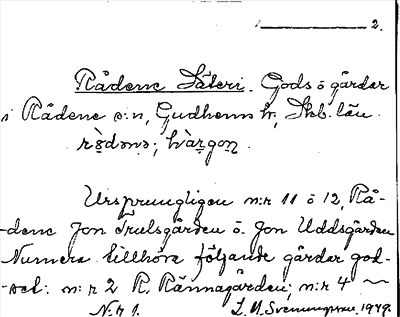 2.
Rådene Säteri. Gods ö gårdar
i Rådene s:n, Gudhems hr, Skb. län.
Ursprungligen n:r 11 ö 12, Rå-
-dene Jon Trulsgården ö. Jon Uddsgården
Numera tillhöra följande gårdar god-
-set: n:r 2 R. Rännagården; n:r 4 ~
N:r 1. 1949.